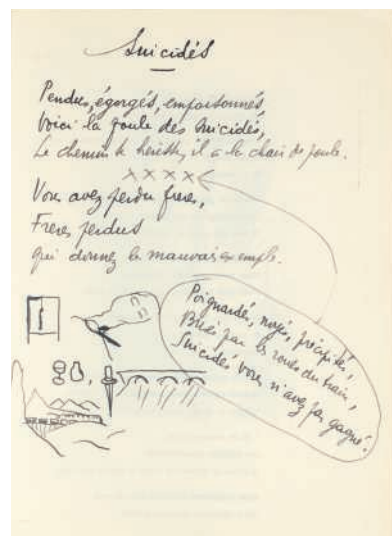 Suicidés
Pendus, égorgés, empoisonnés,
Voici la foule des suicidés,
Le chemin se hérisse, il a la chair de poule.
xxxx
Vous avez perdu freres,
Freres perdus
qui donnez le mauvais exemple.
Poignardés, noyés, précipités,
Brisés par les roues du train,
Suicidés vous n'avez pas gagné!